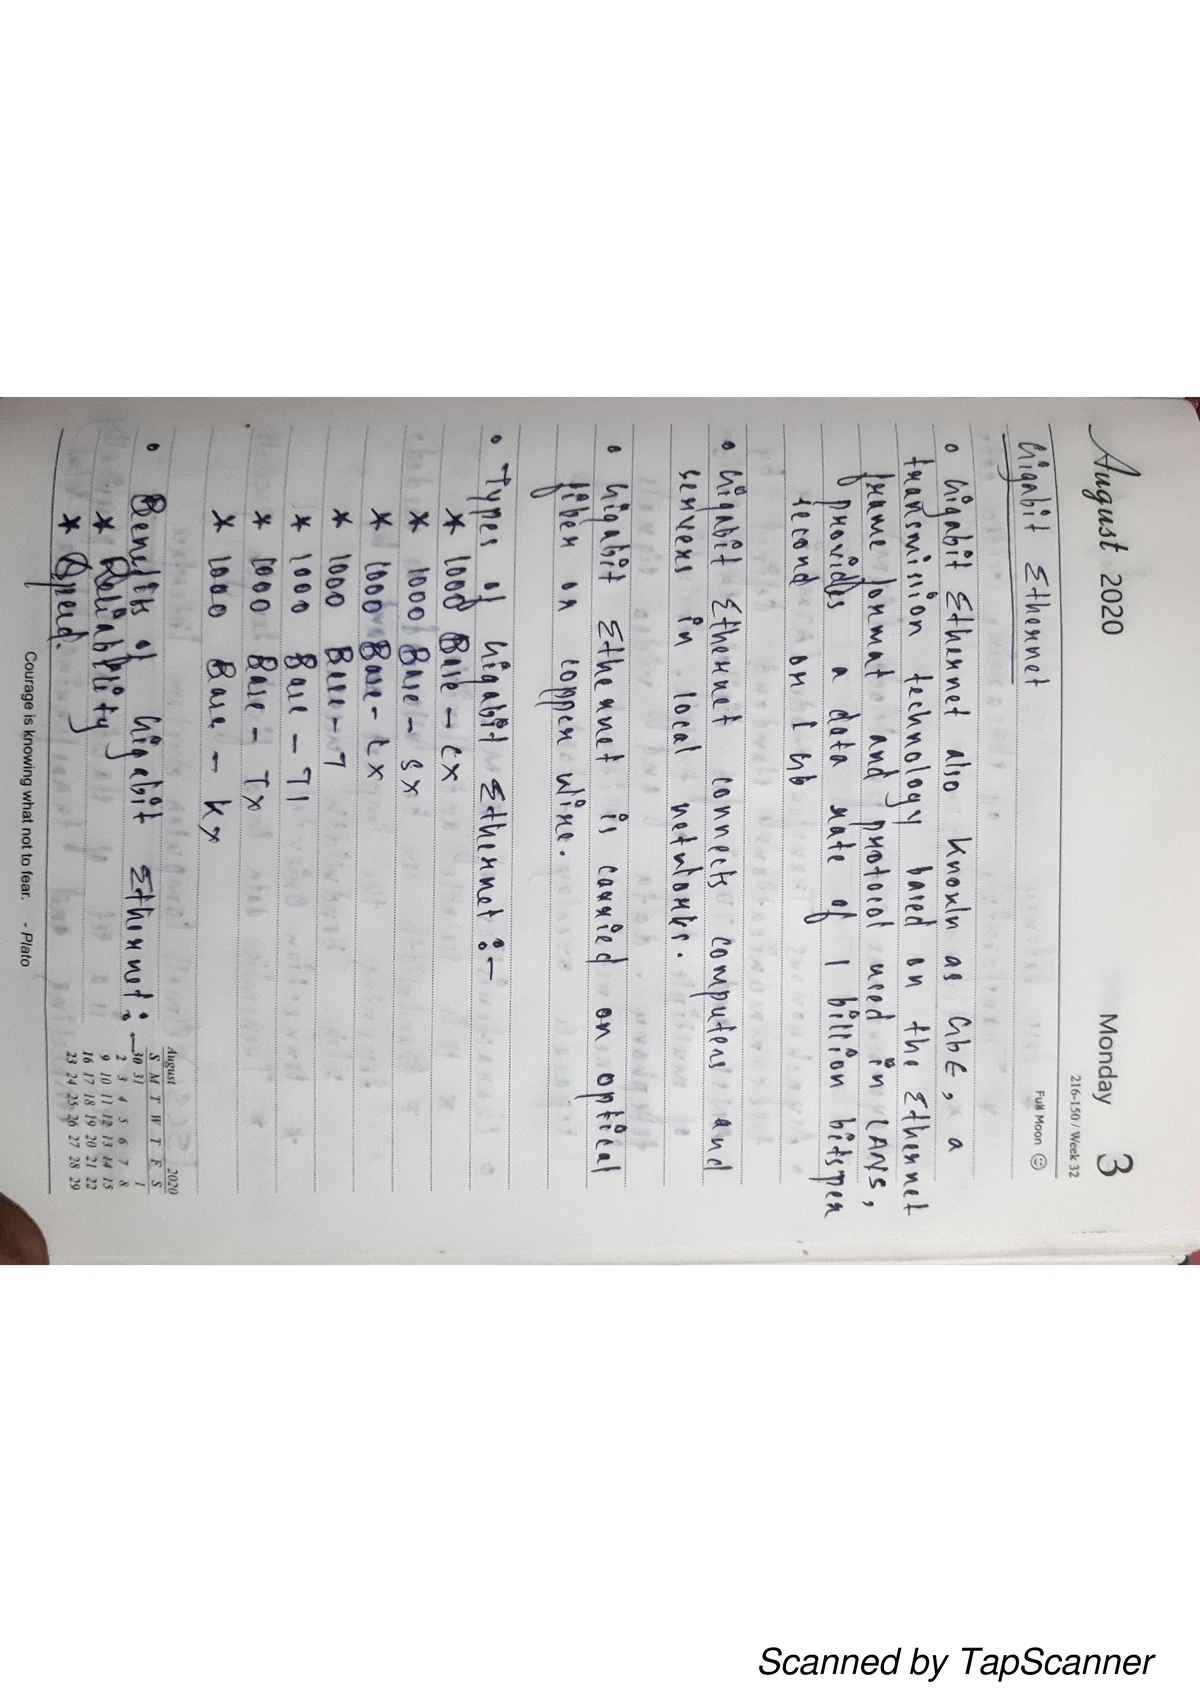 August 2020 Monday 3
216-150 / Week 32
Full Moon
Gigabit Ethernet
• Gigabit Ethernet also known as GbE, a
transmission technology based on the Ethernet
frame format and protocol used in LANs,
provides a data rate of 1 billion bits per
second or 1 Gb
• Gigabit Ethernet connects computers and
servers in local networks.
• Gigabit Ethernet is carried on optical
fiber or copper wire.
• Types of Gigabit Ethernet :-
* 1000 Base - CX
* 1000 Base - SX
* 1000 Base - LX
* 1000 Base - T
* 1000 Base - T1
* 1000 Base - TX
* 1000 Base - KX
• Benefits of Gigabit Ethernet :-
* Reliability
* Speed.
August 2020
S M T W T F S
30 31 1
2 3 4 5 6 7 8
9 10 11 12 13 14 15
16 17 18 19 20 21 22
23 24 25 26 27 28 29
Courage is knowing what not to fear. - Plato
Scanned by TapScanner